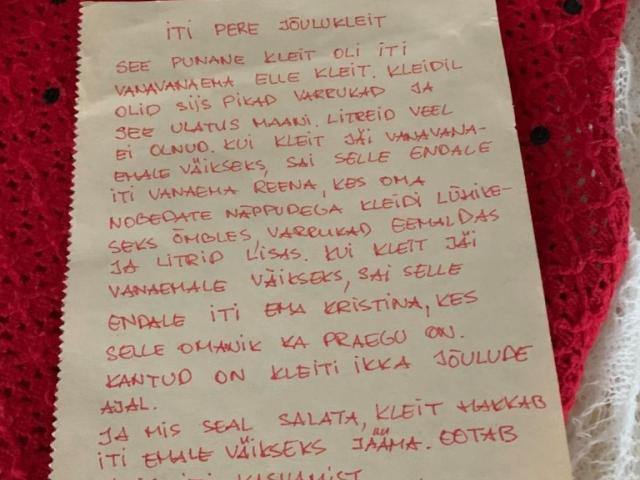 ITI PERE JÕULUKLEIT
SEE PUNANE KLEIT OLI ITI
VANAVANAEMA ELLE KLEIT. KLEIDIL
OLID SIIS PIKAD VARRUKAD JA
SEE ULATUS MAANI. LITREID VEEL
EI OLNUD. KUI KLEIT JÄI VANAVANA-
EMALE VÄIKSEKS, SAI SELLE ENDALE
ITI VANAEMA REENA, KES OMA
NOBEDATE NÄPPUDEGA KLEIDI LÜHIKE-
SEKS ÕMBLES, VARRUKAD EEMALDAS
JA LITRID LISAS. KUI KLEIT JÄI
VANAEMALE VÄIKSEKS, SAI SELLE
ENDALE ITI EMA KRISTINA, KES
SELLE OMANIK KA PRAEGU ON.
KANTUD ON KLEITI IKKA JÕULUDE
AJAL.
JA MIS SEAL SALATA, KLEIT HAKKAB
ITI EMALE VÄIKSEKS JÄÄMA. OOTAB
ITI KASVAMIST